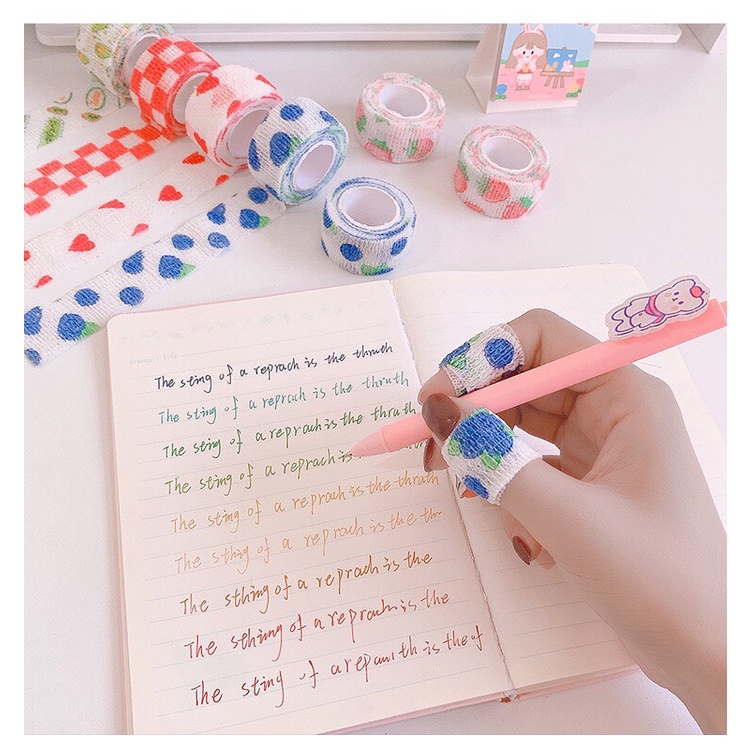 The sting of a reprach is the thruth
The sting of a reprach is the thruth
The sting of a reprach is the thruth
The sting of a reprach is
The sting of a reprach is the thruth
The sthing of a reprach is the thr
The sthing of a reprach is the
The sthing of a reprach is the
The sting of a repauith is the of